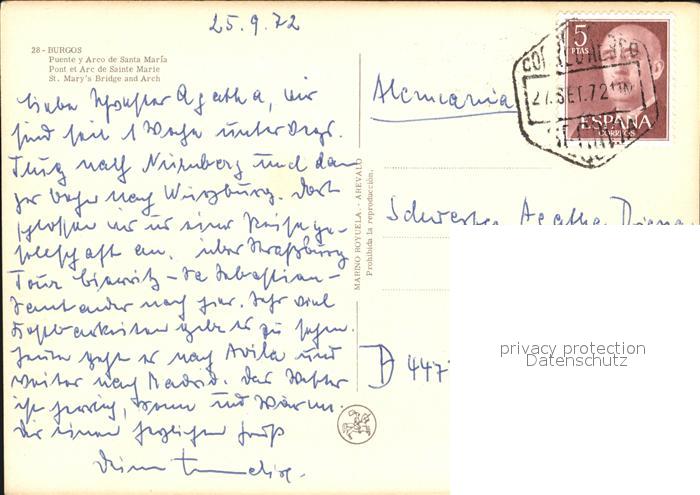 25.9.72
28 - BURGOS
Puente y Arco de Santa María
Pont et Arc de Sainte Marie
St. Mary's Bridge and Arch
Liebe Schwester Agatha, wir
sind seit 1 Woche unterwegs.
Flug nach Nürnberg und dann
per Bahn nach Würzburg. Dort
schlossen wir uns einer Reisege-
sellschaft an. über Straßburg
Tour Biarritz - Sa Sebastian -
Santander nach hier. Sehr viel
Kostbarkeiten gibt es zu sehen.
Heute geht es nach Avila und
weiter nach Madrid. Das Wetter
ist herrlich, Sonne und Wärme.
Dir einen herzlichen Gruß
Deine
MARINO ROYUELA. - AREVALO
Prohibida la reproducción.
5
PTAS
ESPAÑA
CORREOS
CORREO AEREO
27. SET. 72
Alemania
Schwester Agatha
D 447
privacy protection
Datenschutz